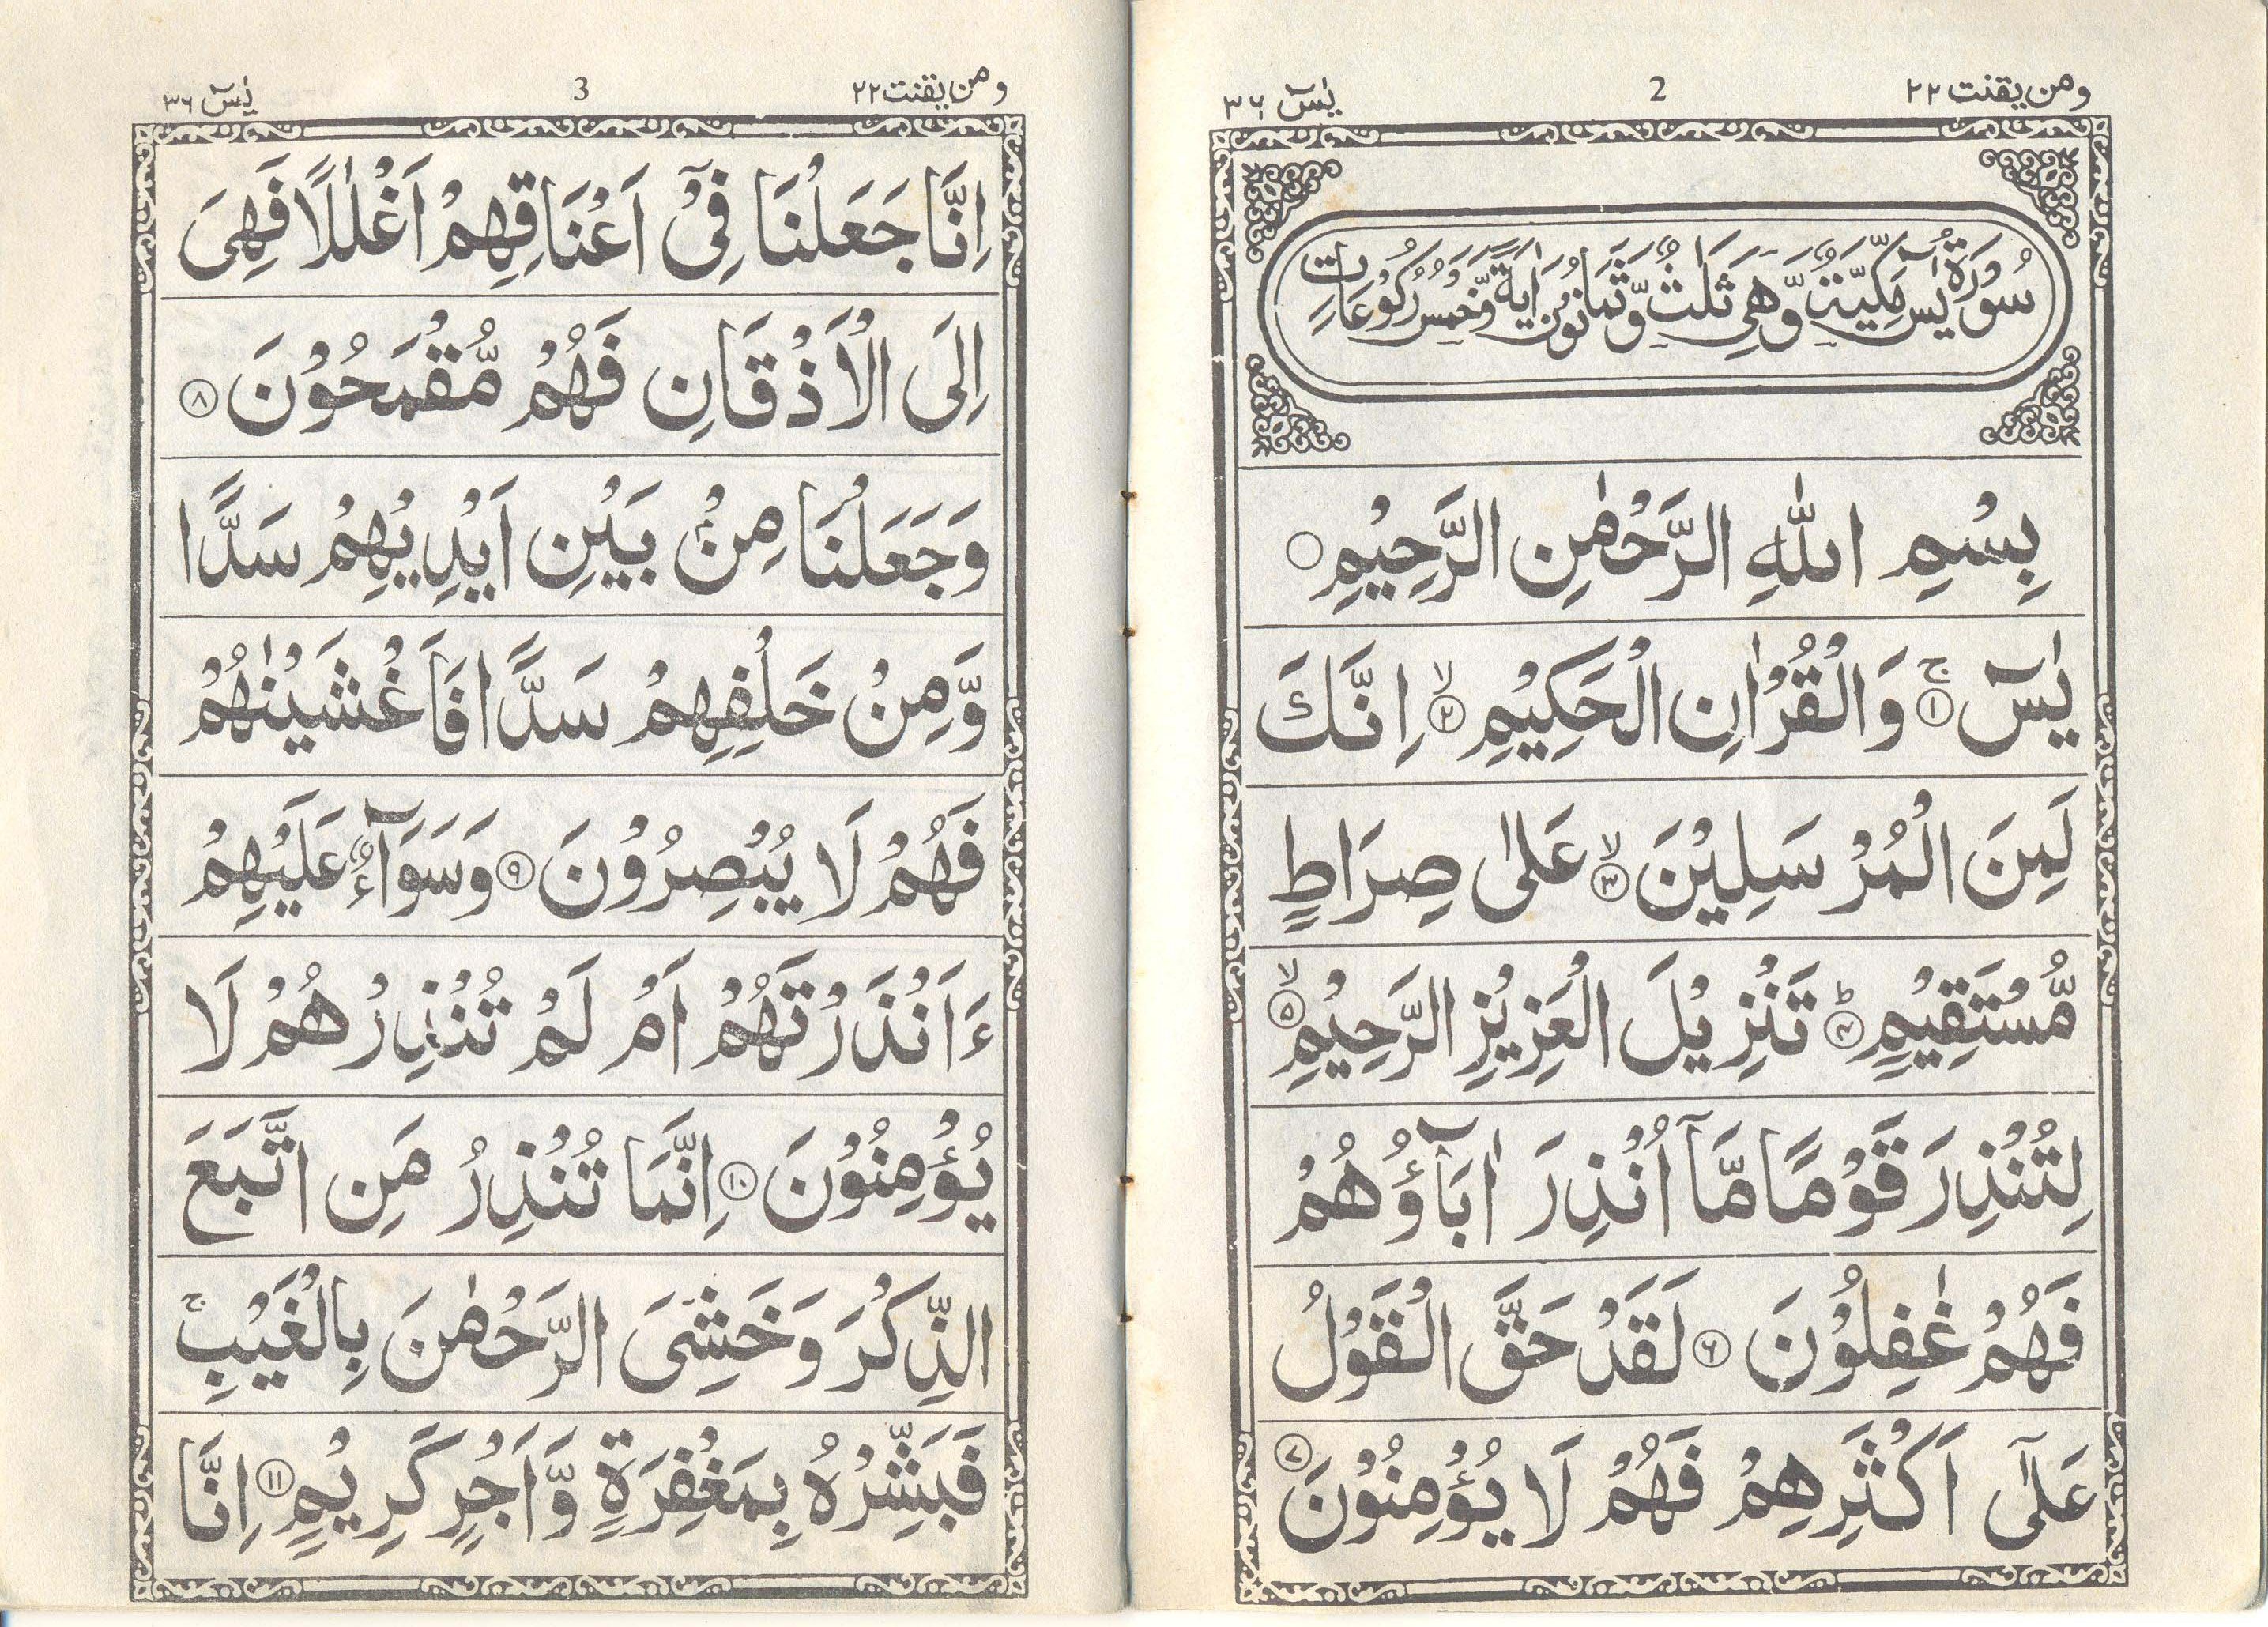 ومن يقنت ٢٢ 2 يٰسٓ ٣٦
سُوْرَةُ يٰسٓ مَكِّيَّةٌ وَّهِيَ ثَلٰثٌ وَّثَمَانُوْنَ اٰيَةً وَّخَمْسُ رُكُوْعَاتٍ
بِسْمِ اللّٰهِ الرَّحْمٰنِ الرَّحِيْمِ ۝
يٰسٓ ۚ‏﴿۱﴾ وَالْقُرْاٰنِ الْحَكِيْمِ ۙ‏﴿۲﴾ اِنَّكَ
لَمِنَ الْمُرْسَلِيْنَ ۙ‏﴿۳﴾ عَلٰى صِرَاطٍ
مُّسْتَقِيْمٍ ؕ‏﴿۴﴾ تَنْزِيْلَ الْعَزِيْزِ الرَّحِيْمِ ۙ‏﴿۵﴾
لِتُنْذِرَ قَوْمًا مَّآ اُنْذِرَ اٰبَآؤُهُمْ
فَهُمْ غٰفِلُوْنَ ﴿۶﴾ لَقَدْ حَقَّ الْقَوْلُ
عَلٰٓى اَكْثَرِهِمْ فَهُمْ لَا يُؤْمِنُوْنَ ﴿۷﴾
ومن يقنت ٢٢ 3 يٰسٓ ٣٦
اِنَّا جَعَلْنَا فِيْٓ اَعْنَاقِهِمْ اَغْلٰلًا فَهِيَ
اِلَى الْاَذْقَانِ فَهُمْ مُّقْمَحُوْنَ ﴿۸﴾
وَجَعَلْنَا مِنْۢ بَيْنِ اَيْدِيْهِمْ سَدًّا
وَّمِنْ خَلْفِهِمْ سَدًّا فَاَغْشَيْنٰهُمْ
فَهُمْ لَا يُبْصِرُوْنَ ﴿۹﴾ وَسَوَآءٌ عَلَيْهِمْ
ءَاَنْذَرْتَهُمْ اَمْ لَمْ تُنْذِرْهُمْ لَا
يُؤْمِنُوْنَ ﴿۱۰﴾ اِنَّمَا تُنْذِرُ مَنِ اتَّبَعَ
الذِّكْرَ وَخَشِيَ الرَّحْمٰنَ بِالْغَيْبِ ۚ
فَبَشِّرْهُ بِمَغْفِرَةٍ وَّاَجْرٍ كَرِيْمٍ ﴿۱۱﴾ اِنَّا